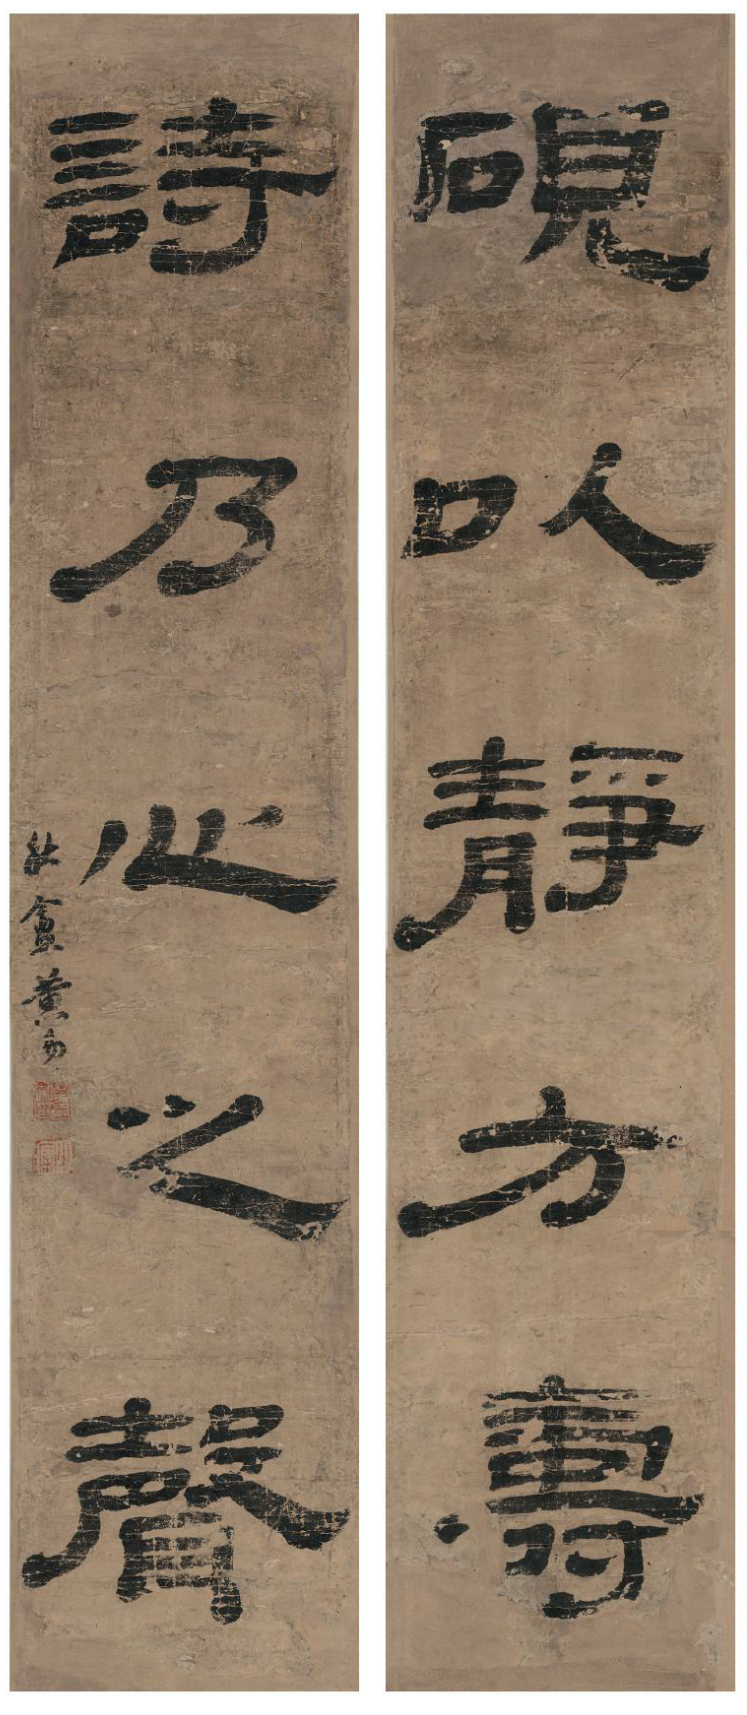 硯以靜方壽
詩乃心之聲
秋盦黃易